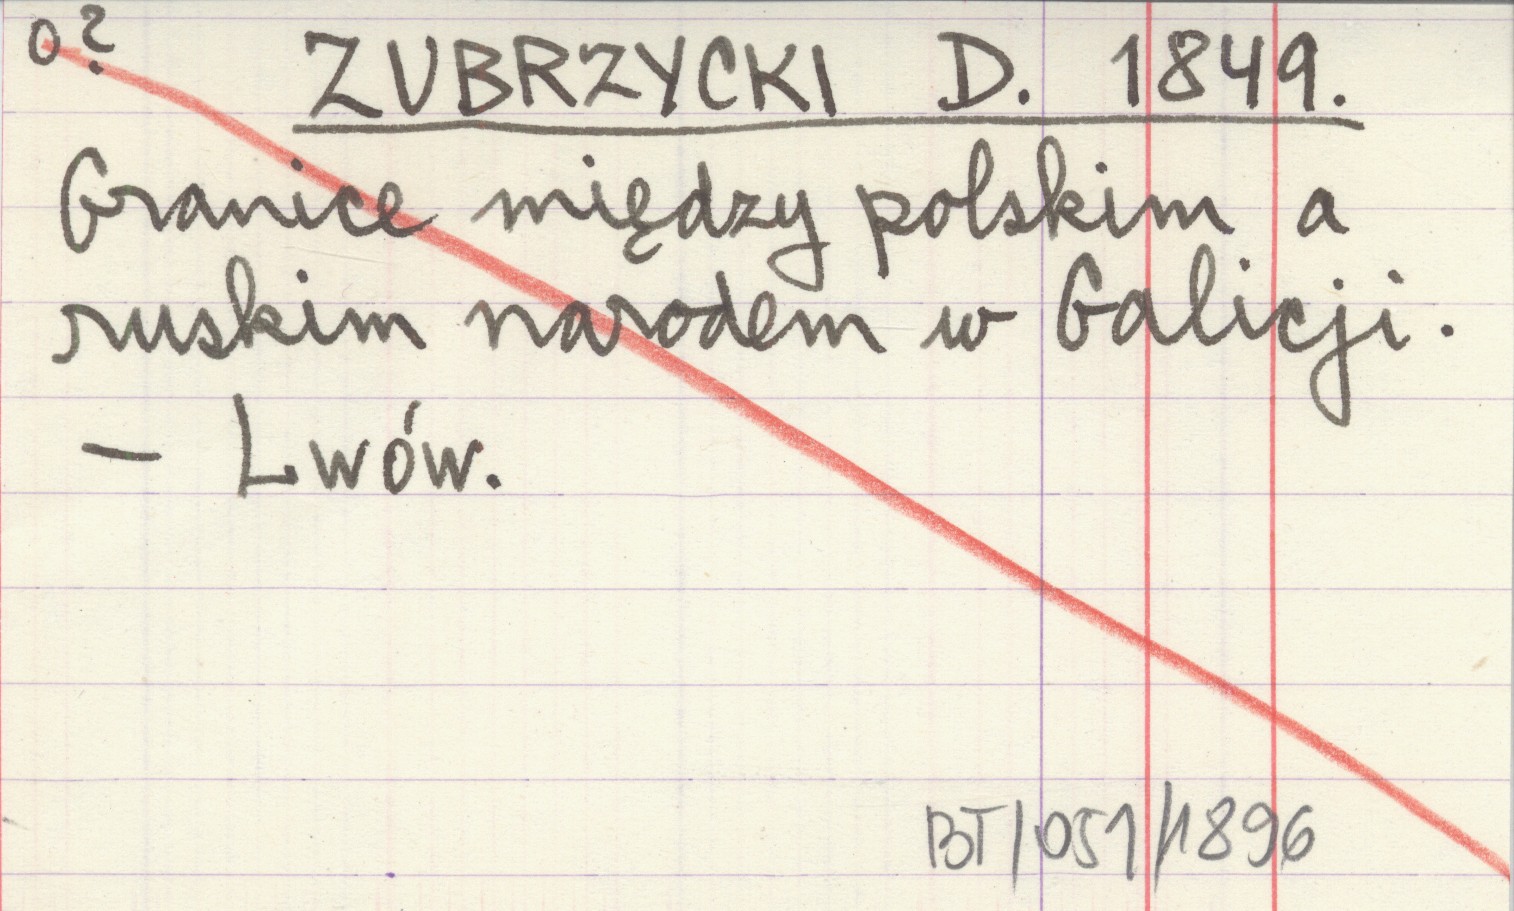 o?
ZUBRZYCKI D. 1849.
Granice między polskim a
ruskim narodem w Galicji.
– Lwów.
BT/051/1896